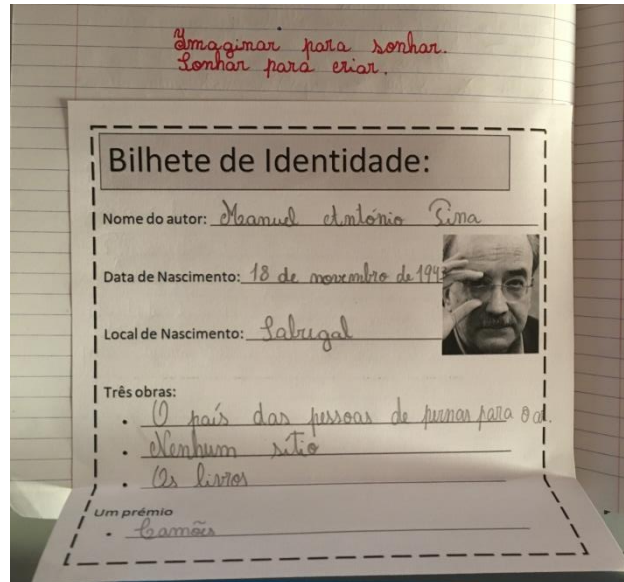 Imaginar para sonhar.
Sonhar para criar.
Bilhete de Identidade:
Nome do autor: Manuel António Pina
Data de Nascimento: 18 de novembro de 1943
Local de Nascimento: Sabugal
Três obras:
• O país das pessoas de pernas para o ar.
• Nenhum sítio
• Os livros
Um prémio
• Camões